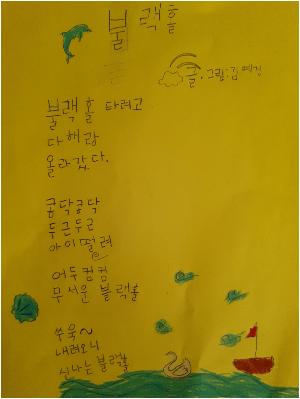 블랙홀
글·그림:김예진
블랙홀 타려고
다해랑
올라갔다.
콩닥콩닥
두근두근
아이떨려
어두컴컴
무서운 블랙홀
쑤욱~
내려오니
신나는블랙홀